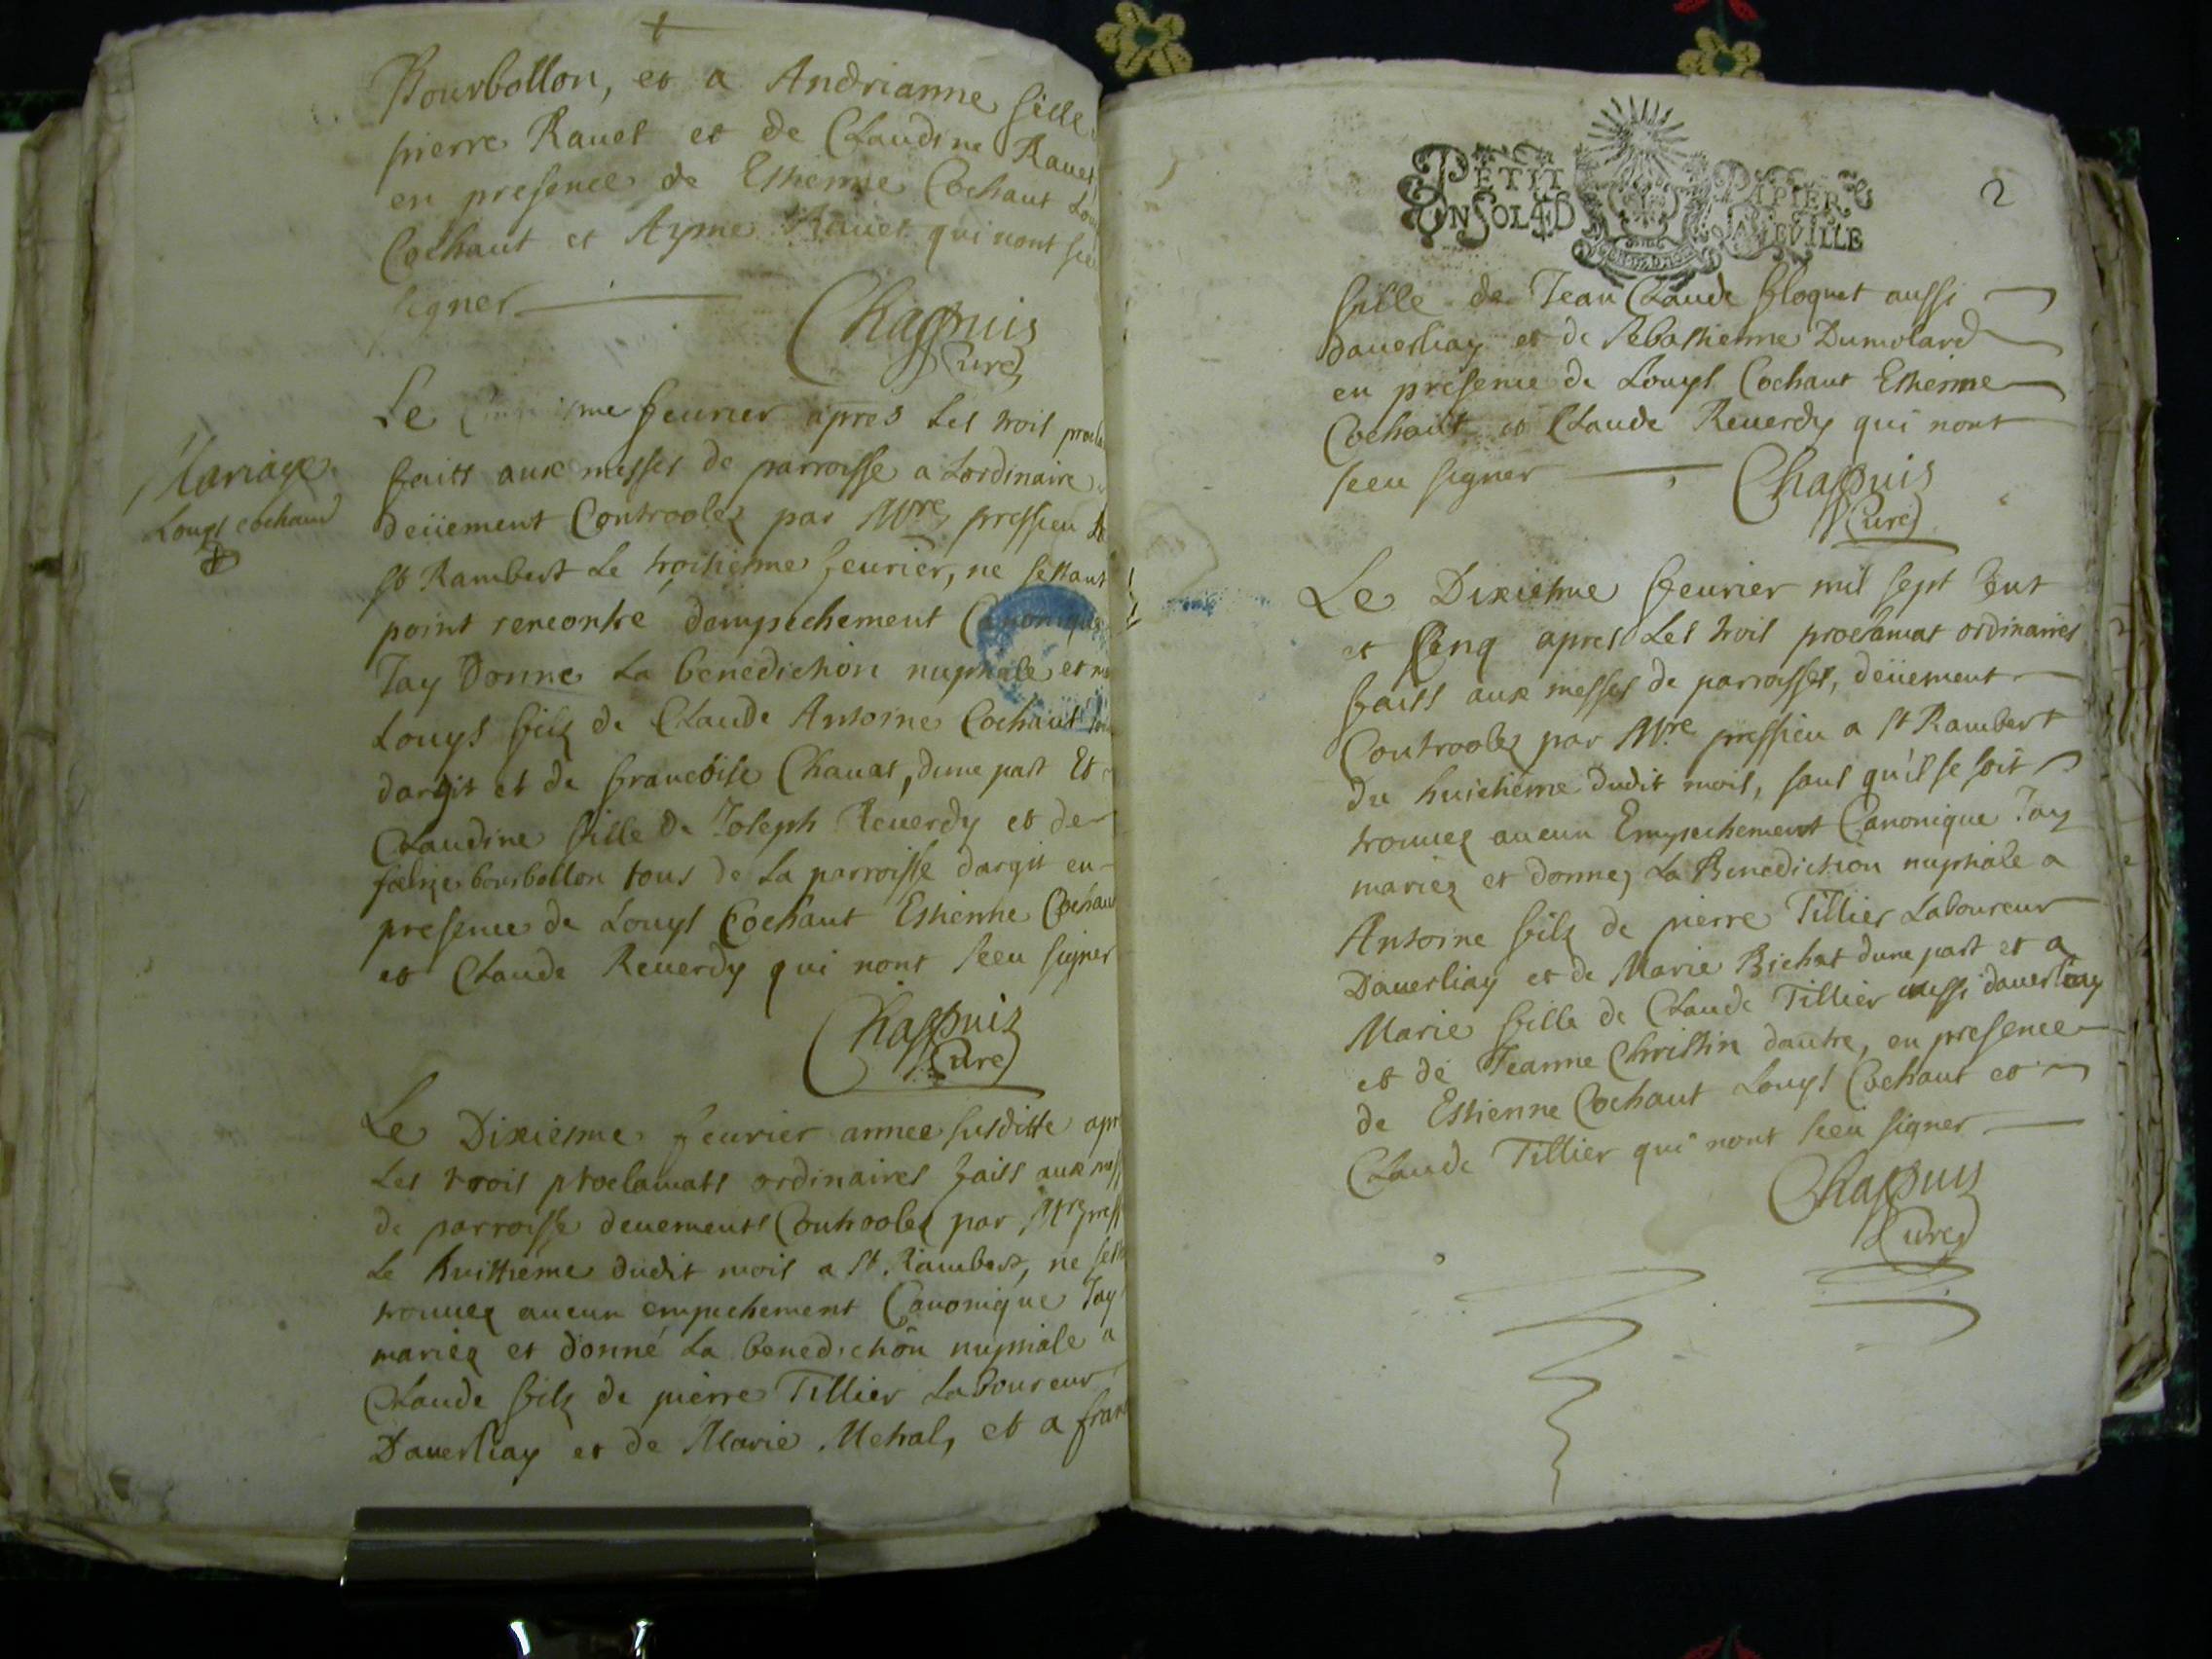 Bourbollon, et a Andrianne fille
pierre Rauet et de Claudine Rauet
en presence de Estienne Cochaut Lou
Cochaut et Ayme Rauet qui nont sce
signer
Chappuis
Curé
Mariage
Louys cochaud
Le feurier apres Les trois procla
faits aux messes de parroisse a Lordinaire
deüement Controolez par Mre pressieu A
St Rambert Le troisiesme feurier, ne sestant
point rencontré dempechement Canonique
Jay Donné La benediction nuptiale et m
Louys filz de Claude Antoine Cochaut
dargit et de francoise Chauat, dune part Et
Claudine fille de Joseph Reuerdy et de
bourbollon tous de La parroisse dargit en
presence de Louys Cochaut Estienne Cochau
et Claude Reuerdy qui nont sceu signer
Chappuis
Curé
Le Dixiesme feurier annee susditte apr
Les trois proclamats ordinaires faits aux mess
de parroisse deuements Controolez par Mre press
Le huittiéme dudit mois a St. Rambert, ne sest
trouuez aucun empechement Canonique Jay
mariez et donné La benediction nuptiale a
Claude filz de pierre Tillier Laboureur
Dauerliay et de Marie Mehal, et a fran
PETIT PAPIER
UN SOL 4 D LA FEVILLE
2
fille de Jean Claude floquet aussi
dauerliay et de Sebastienne Dumolard
en presence de Louys Cochaut Estienne
Cochaut et Claude Reuerdy qui nont
sceu signer
Chappuis
Curé
Le Dixiesme feurier mil sept Cent
et Cinq apres Les trois proclamat ordinaires
faits aux messes de parroisses, deüement
Controolez par Mre pressieu a St Rambert
du huictiéme dudit mois, sans qu'il se soit
trouuez aucun Empechement Canonique Jay
mariez et donnez La Benediction nuptiale a
Antoine filz de pierre Tillier Laboureur
Dauerliay et de Marie Bichat dune part et a
Marie fille de Claude Tillier aussi dauerliay
et de Jeanne Christin dautre, en presence
de Estienne Cochaut Louys Cochaut et
Claude Tillier qui nont sceu signer
Chappuis
Curé